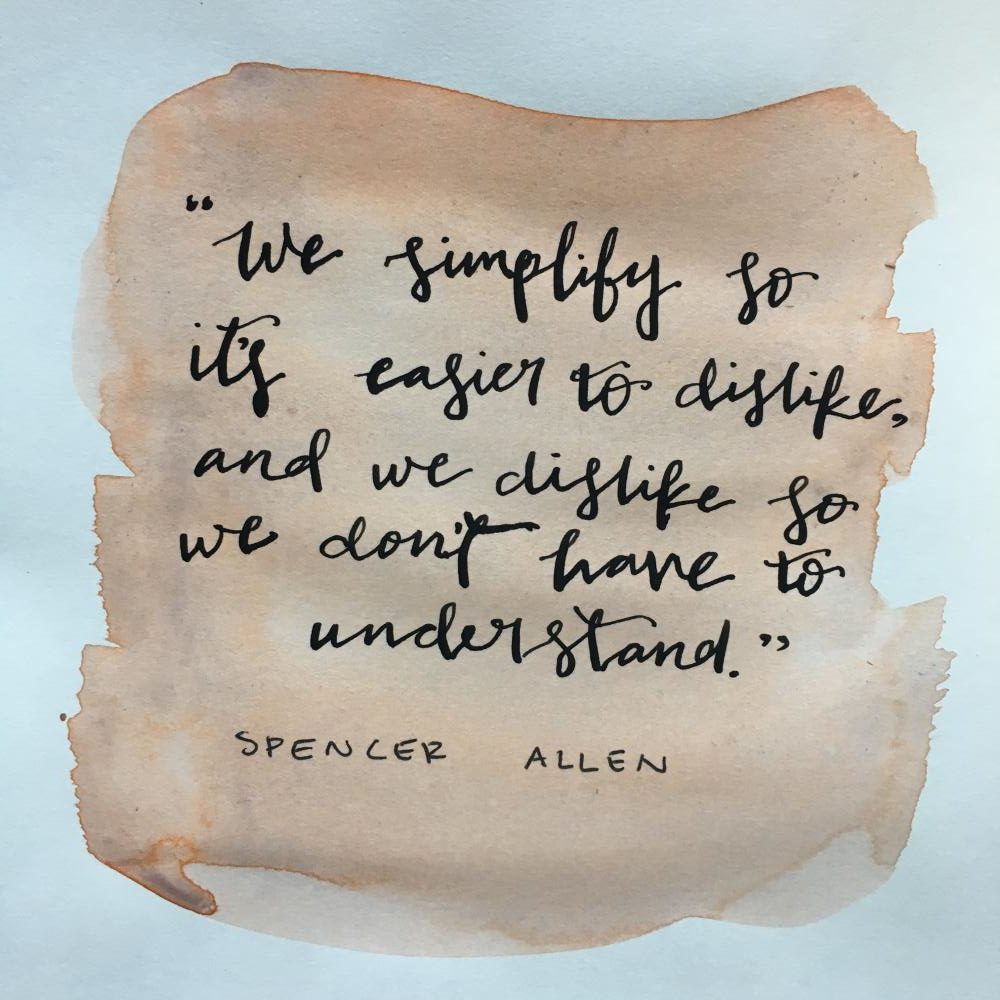 “We simplify so
it's easier to dislike,
and we dislike so
we don't have to
understand.”
SPENCER ALLEN